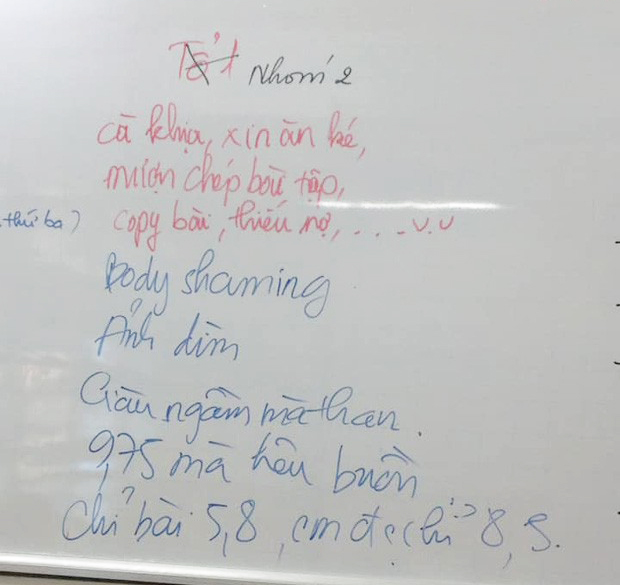 Tổ 1 Nhóm 2
cà khịa, xin ăn ké,
mượn chép bài tập,
thứ ba) copy bài, thiếu nợ, . . . v.v
Body shaming
Ảnh dìm
Giàu ngầm mà than.
9,75 mà kêu buồn
Chỉ bài 5,8, cm đc chỉ :> 8,5.